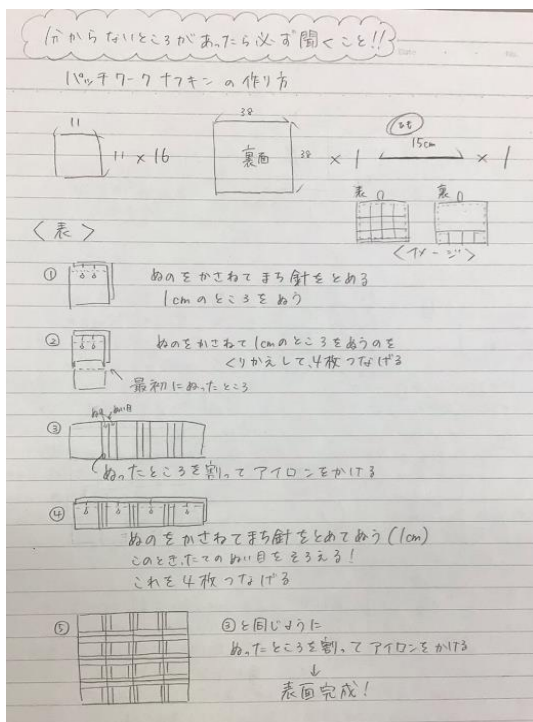 分からないところがあったら必ず聞くこと!!
パッチワークナフキンの作り方
11
11 × 16
38
裏面
38 × 1
ひも
15cm
× 1
表
裏
<イメージ>
<表>
① ぬのをかさねてまち針をとめる
1cmのところをぬう
② ぬのをかさねて1cmのところをぬうのを
くりかえして、4枚つなげる
最初にぬったところ
③ ぬい目
ぬったところを割ってアイロンをかける
④
ぬのをかさねてまち針をとめてぬう(1cm)
このとき、たてのぬい目をそろえる!
これを4枚つなげる
⑤ ③と同じように
ぬったところを割ってアイロンをかける
↓
表面完成!